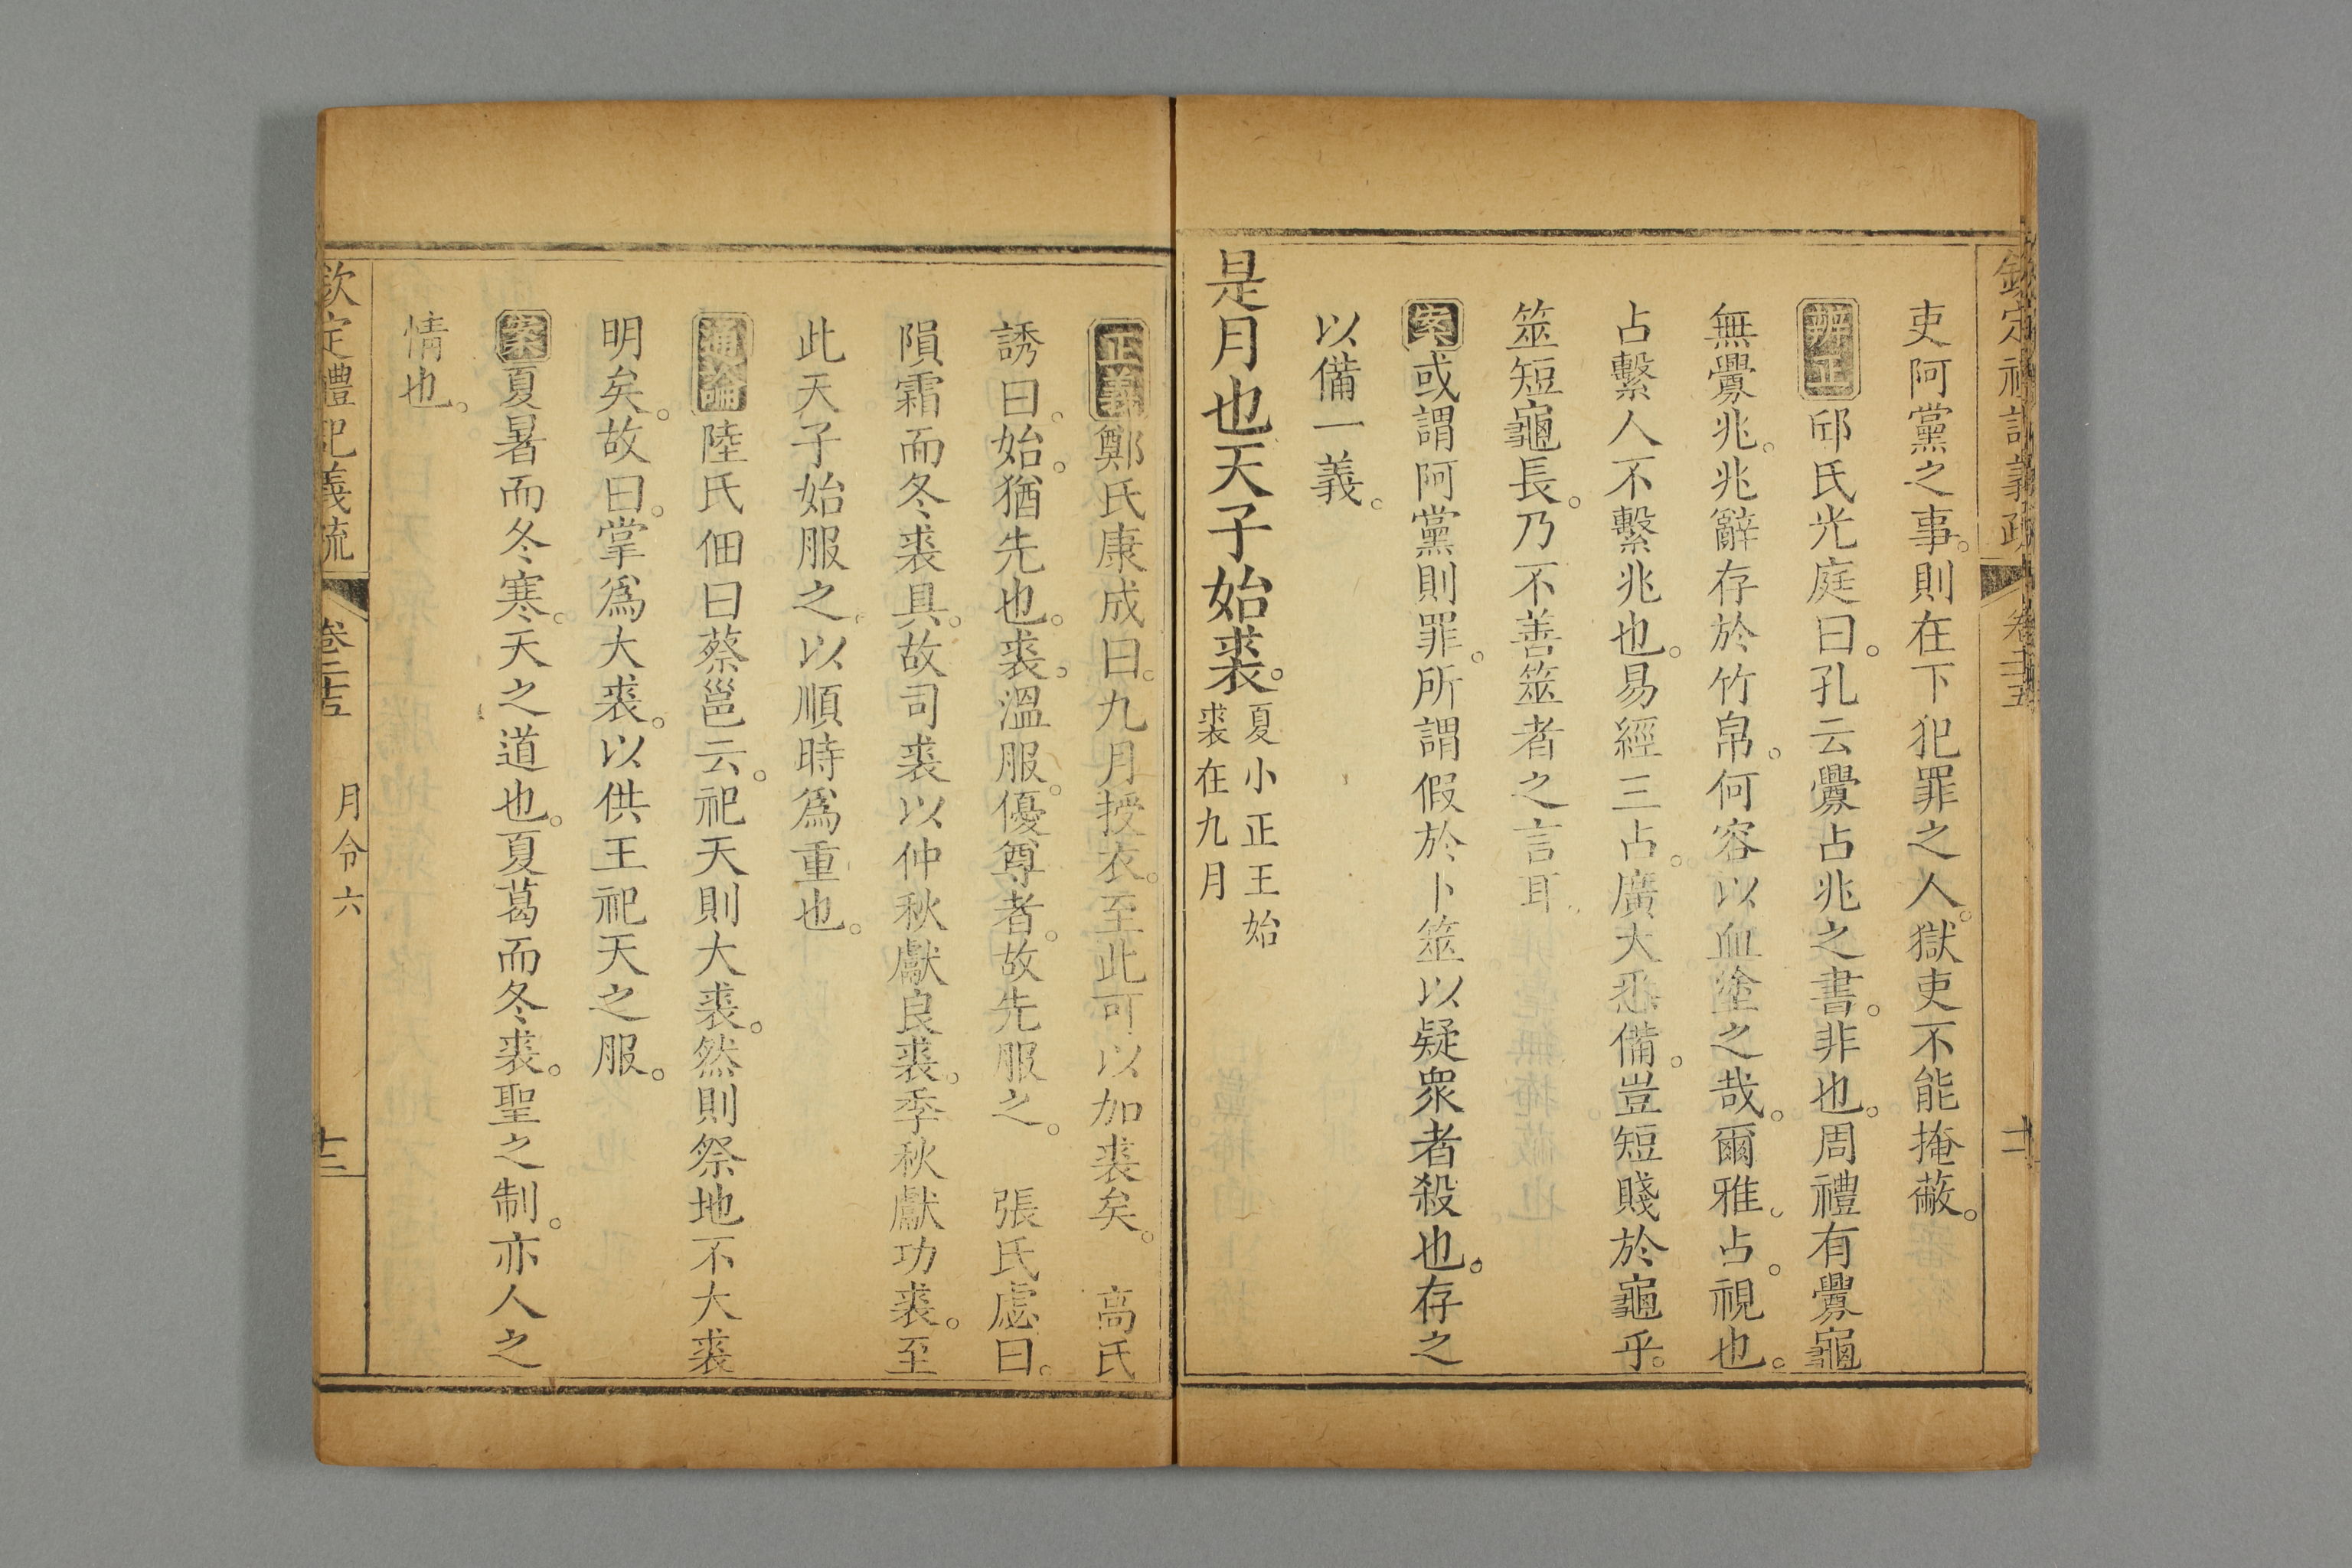 欽定禮記義疏　卷二十五　十二
吏阿黨之事。則在下犯罪之人。獄吏不能掩蔽。
辨正 邱氏光庭曰。孔云釁占兆之書。非也。周禮有釁龜
無釁兆。兆辭存於竹帛。何容以血塗之哉。爾雅。占。視也。
占繫人不繫兆也。易經三占。廣大悉備。豈短賤於龜乎。
筮短龜長。乃不善筮者之言耳。
案或謂阿黨則罪。所謂假於卜筮以疑衆者殺也。存之
以備一義。
是月也天子始裘。夏小正王始
裘在九月
正義鄭氏康成曰。九月授衣。至此可以加裘矣。　高氏
誘曰。始。猶先也。裘。溫服。優尊者。故先服之。　張氏虙曰。
隕霜而冬裘具。故司裘以仲秋獻良裘。季秋獻功裘。至
此天子始服之。以順時爲重也。
通論陸氏佃曰蔡邕云。祀天則大裘。然則祭地不大裘
明矣。故曰。掌爲大裘。以供王祀天之服。
案夏暑而冬寒。天之道也。夏葛而冬裘。聖之制。亦人之
情也。
欽定禮記義疏　卷二十五　月令六　十三